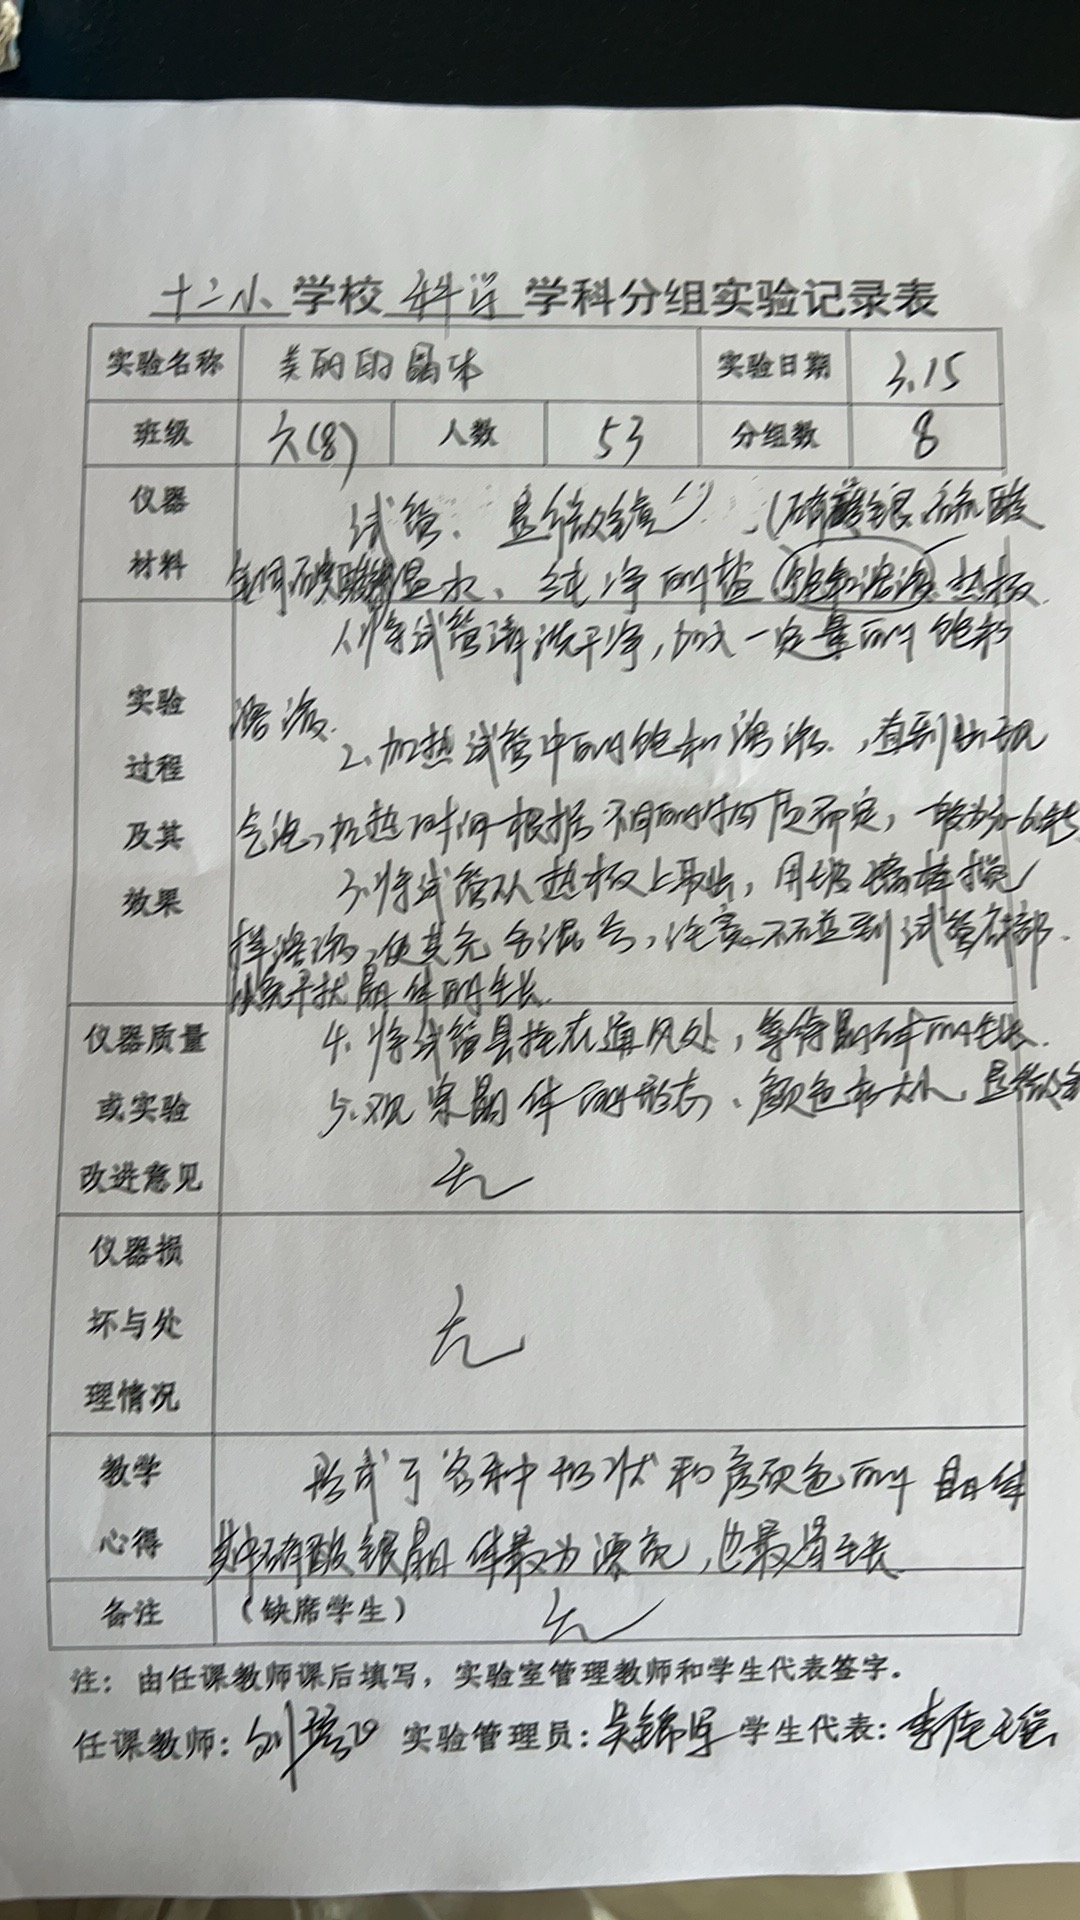 十二小学校 科学 学科分组实验记录表
实验名称 美丽的晶体 实验日期 3.15
班级 六(8) 人数 53 分组数 8
仪器 试管、显微镜 (硝酸银 硫酸
材料 温水、纯净的盐 饱和溶液 热板
1.将试管清洗干净,加入一定量的饱和
实验 溶液.
2.加热试管中的饱和溶液,直到出现
过程
及其 气泡,加热时间根据不同的物质而定,一般为
效果 3.将试管从热板上取出,用玻璃棒搅
拌溶液,使其充分混匀,注意不要碰到试管底部.
以免干扰晶体的生长.
仪器质量 4.将试管悬挂在通风处,等待晶体的生长.
或实验 5.观察晶体的形态、颜色和大小,显微镜
改进意见 无
仪器损
坏与处 无
理情况
教学 形成了各种形状和颜色的晶体
心得 其中硝酸银晶体最为漂亮,也最易生长
备注 (缺席学生) 无
注:由任课教师课后填写,实验室管理教师和学生代表签字。
任课教师: 实验管理员: 学生代表: